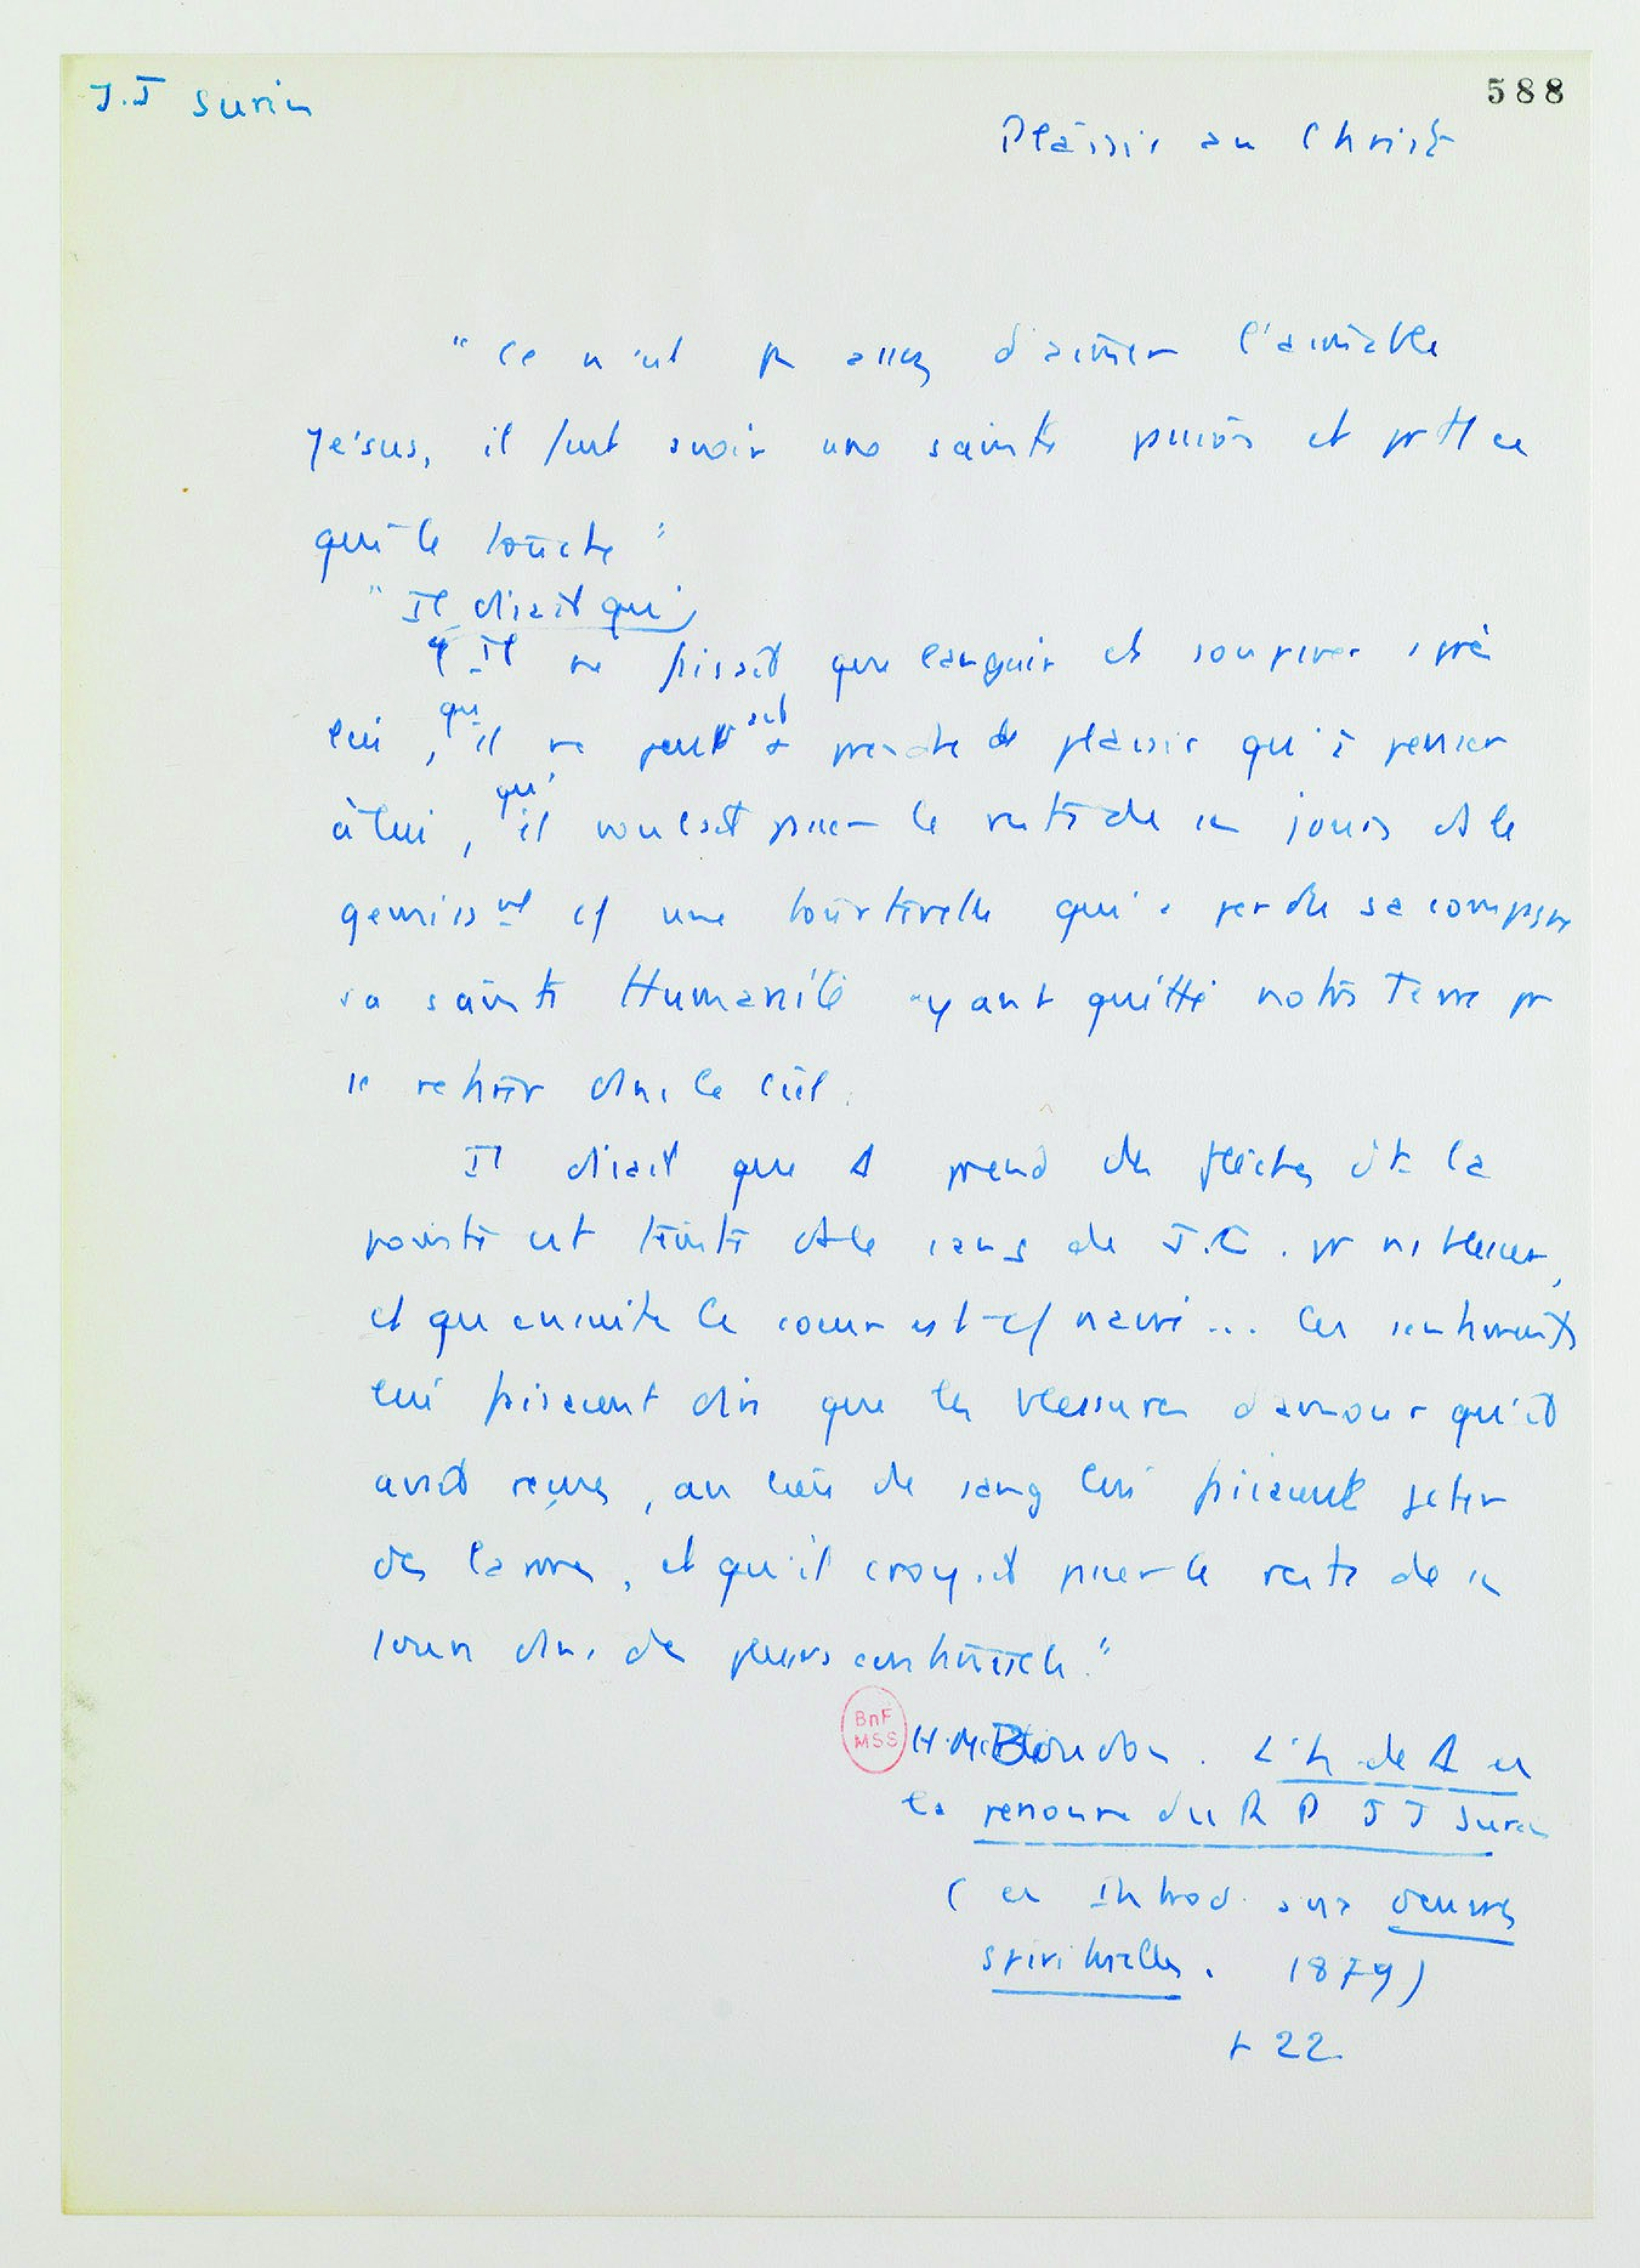 J.J Surin
588
Plaisir au Christ
" Ce n'est p assez d'aimer l'aimable
Jésus, il faut avoir une sainte passion et pr tt ce
qui le touche "
" Il disait qu'
Il ne faisait que languir et soupirer après
lui, qu'il ne peut prendre de plaisir qu'à penser
à lui, qu'il voulait passer le reste de ses jours ds le
gemissmt cf une tourterelle qui a perdu sa compagne
sa sainte Humanité ayant quitté notre Terre pr
se retirer dans le Ciel.
Il disait que A prend des fleches dt la
pointe est teinte ds le sang de J.C. pr ns blesser,
et qu'ensuite le coeur est cf navré ... Ces sentiments
lui faisaient dire que les blessures d'amour qu'il
avait reçues, au lieu de sang lui faisaient jeter
des larmes, et qu'il croyait passer le reste de ses
jours dans des pleurs continuels."
BnF
MSS
H.M. Boudon. L'h de A en
la personne du R P J J Surin
( en Introd. aux Oeuvres
spirituelles. 1879)
22